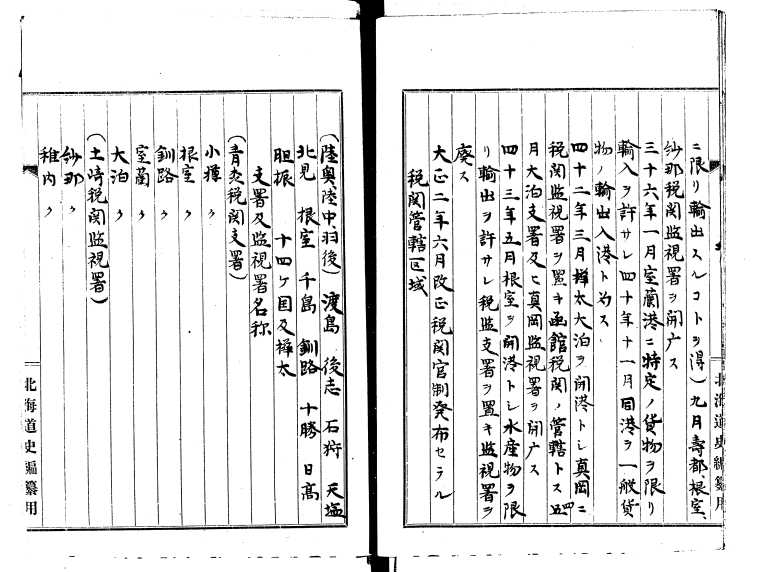 ニ限リ輸出スルコトヲ得）九月壽都、根室、
紗那税関監視署ヲ開廃ス
三十六年一月室蘭港ニ特定ノ貨物ヲ限リ
輸入ヲ許サレ四十年十一月同港ヲ一般貨
物ノ輸出入港ト為ス
四十二年三月樺太大泊ヲ開港トシ真岡ニ
税関監視署ヲ置キ函館税関ノ管轄トス四
月大泊支署及ヒ真岡監視署ヲ開廃ス
四十三年五月根室ヲ開港トシ水産物ヲ限
リ輸出ヲ許サレ税監支署ヲ置キ監視署ヲ
廃ス
大正二年六月改正税関官制発布セラル
税関管轄区域
北海道史編纂用
（陸奥、陸中、羽後）渡島 後志 石狩 天塩
北見 根室 千島 釧路 十勝 日高
胆振 十四ケ国及樺太
支署及監視署名称
（青森税関支署）
小樽〃
根室〃
釧路〃
室蘭〃
大泊〃
（土崎税関監視署）
紗那〃
稚内〃
北海道史編纂用